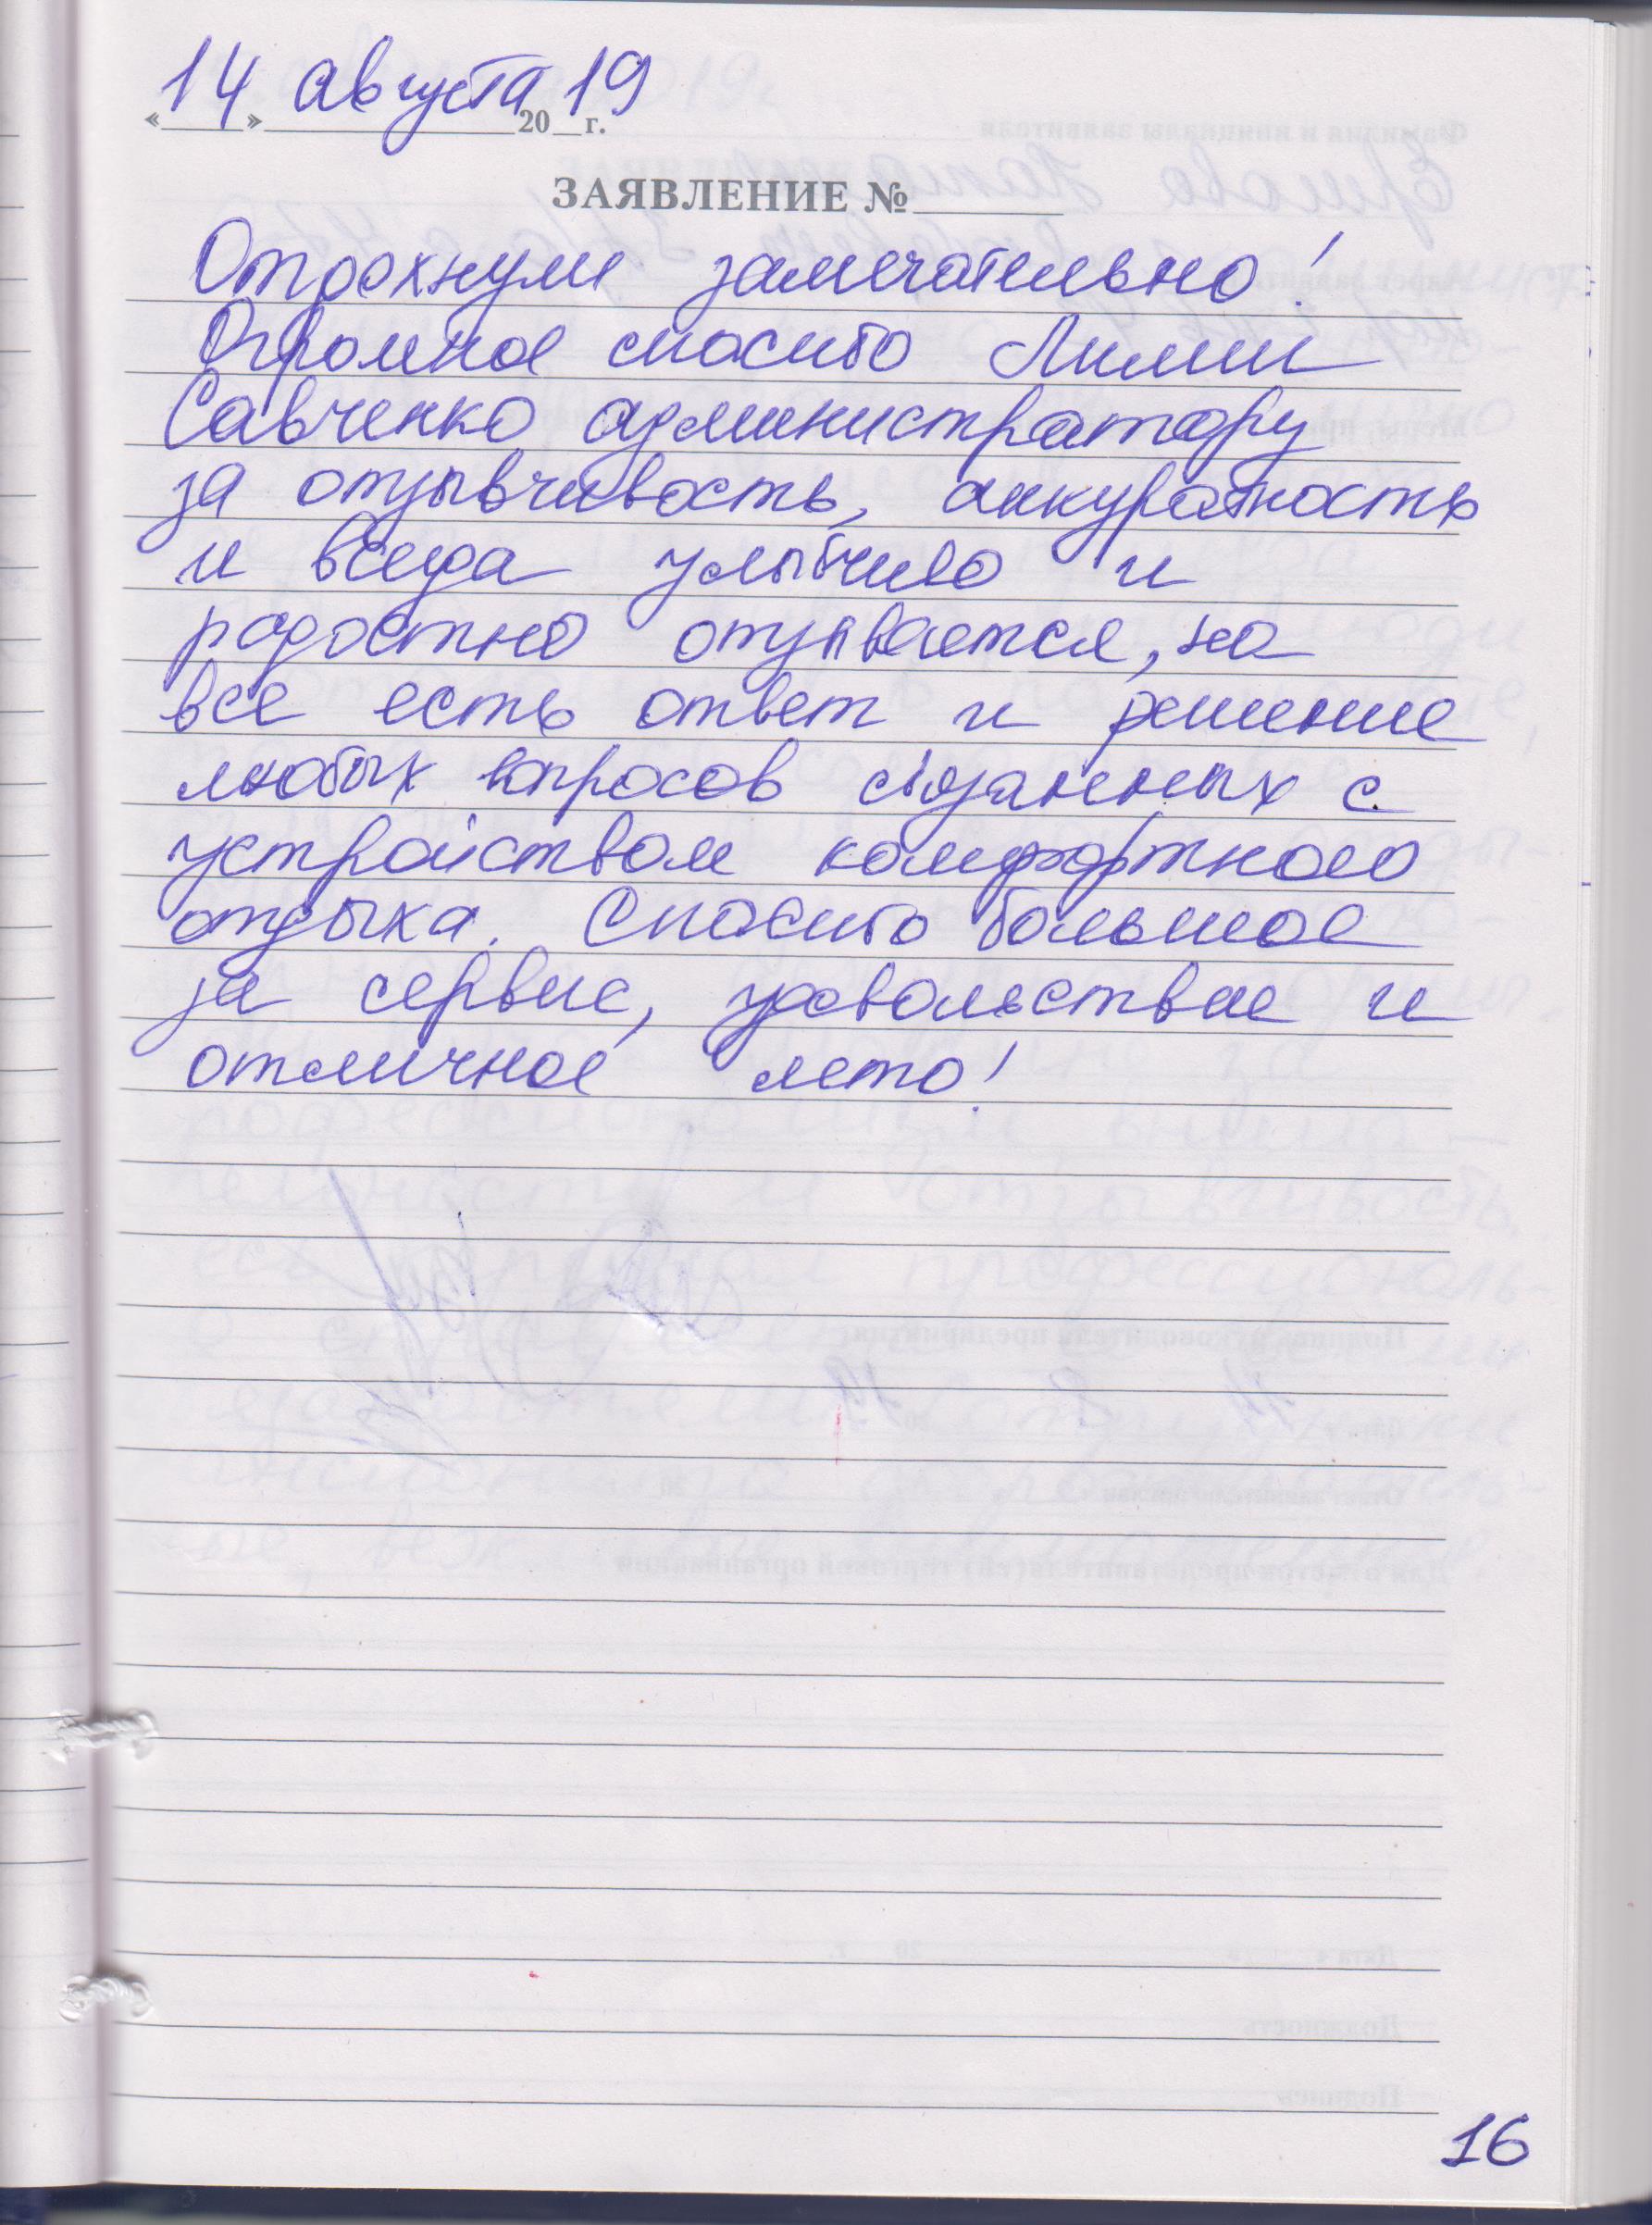 «14» августа 2019 г.
ЗАЯВЛЕНИЕ №
Отдохнули замечательно!
Огромное спасибо Лилии
Савченко администратору
за отзывчивость, аккуратность
и всегда улыбчиво и
радостно отзывается, на
все есть ответ и решение
любых впросов связанных с
устройством комфортного
отдыха. Спасибо большое
за сервис, удовольствие и
отличное лето!
16